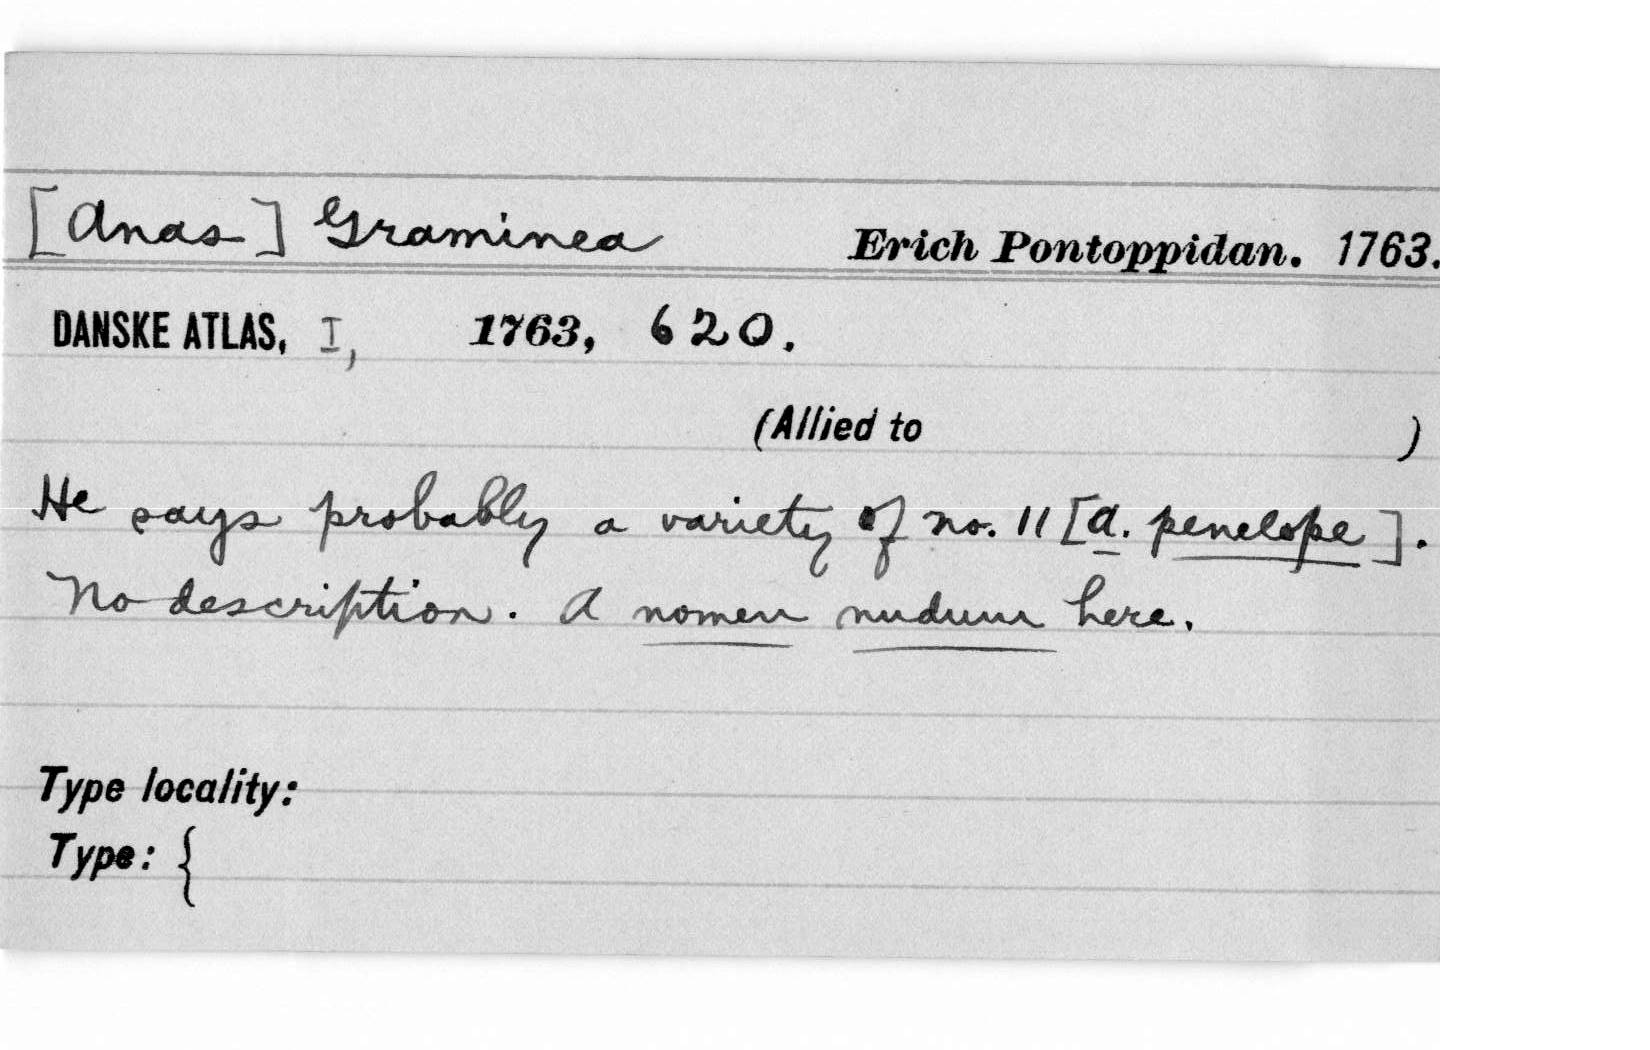 [Anas] Graminea Erich Pontoppidan. 1763.
DANSKE ATLAS, I, 1763, 620.
(Allied to )
He says probably a variety of no. 11 [A. penelope].
No description. A nomen nudum here.
Type locality:
Type: {